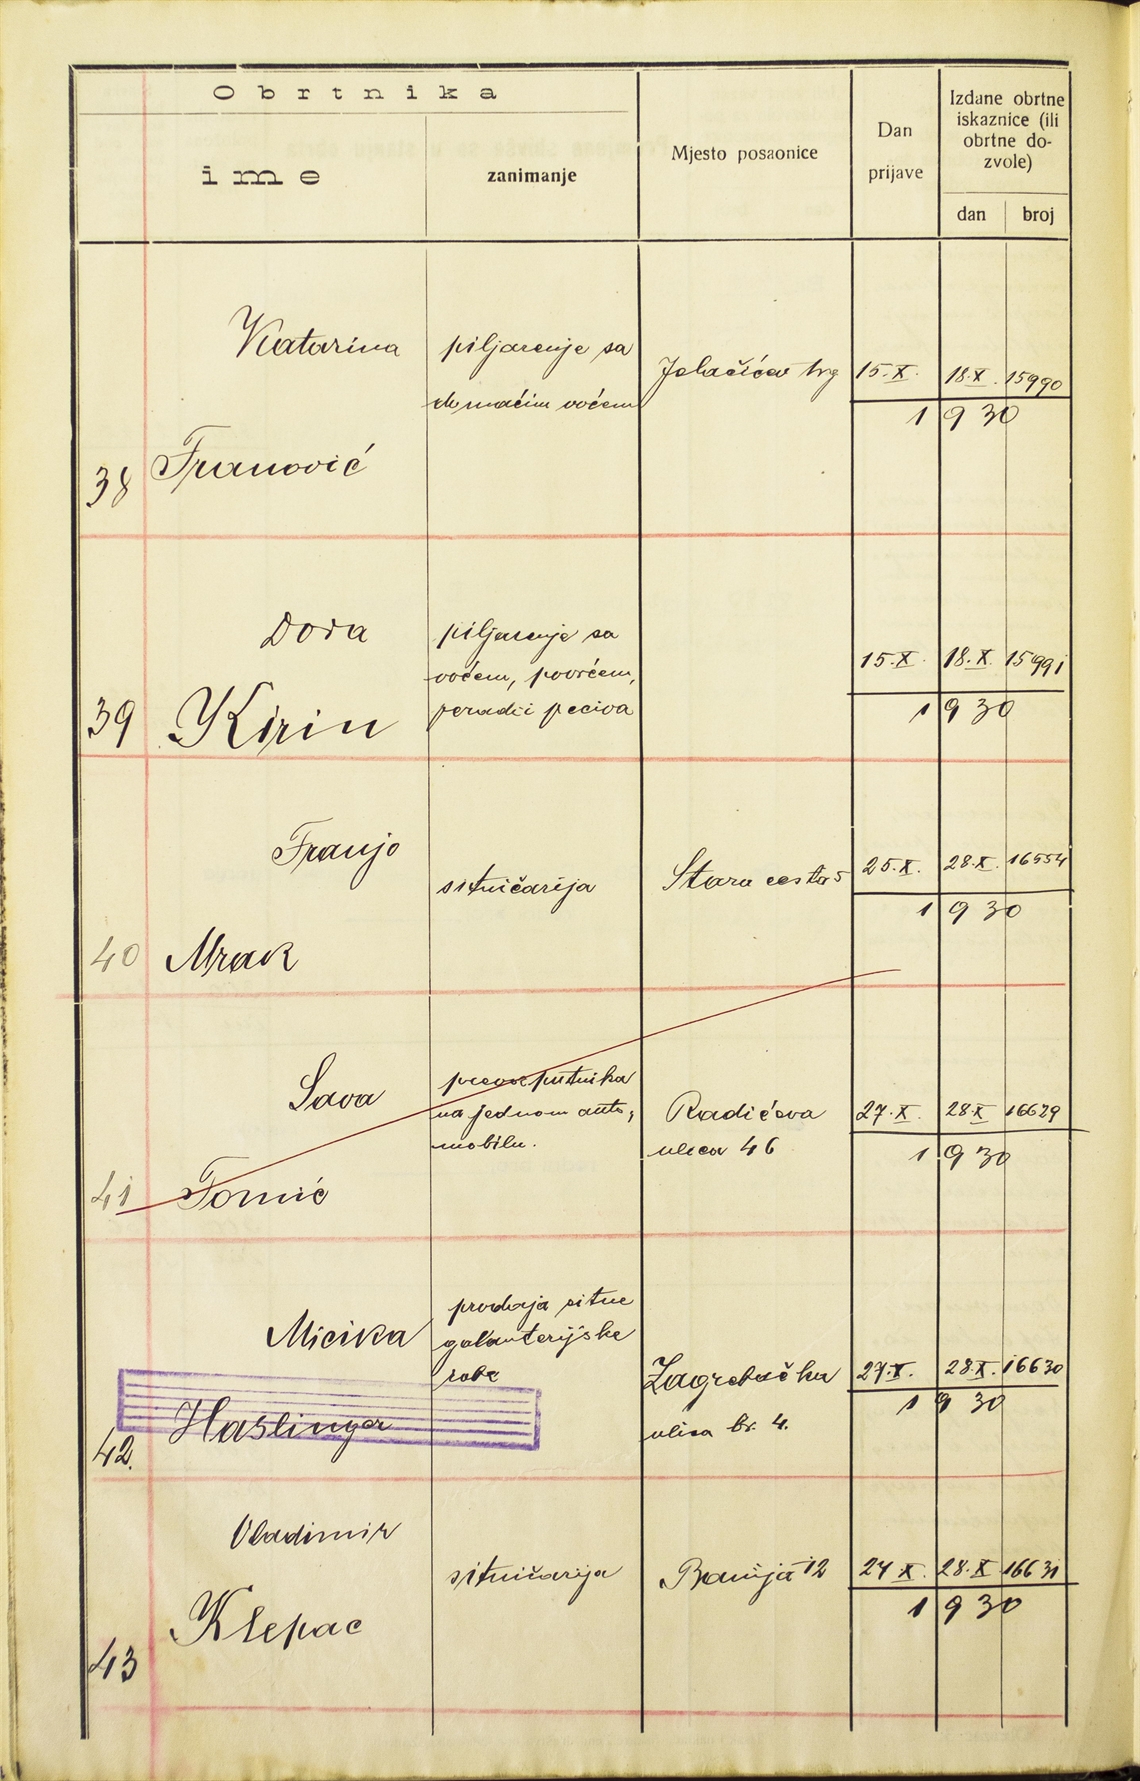 Obrtnika
ime
zanimanje
Mjesto posaonice
Dan
prijave
Izdane obrtne
iskaznice (ili
obrtne do-
zvole)
dan
broj
38
Katarina
Franović
piljarenje sa
domaćim voćem
Jelačićev trg
15.X.
18.X.
15990
1930
39
Dora
Kirin
piljarenje sa
voćem, povrćem,
peradi i peciva
15.X.
18.X.
15991
1930
40
Franjo
Mrak
sitničarija
Stara cesta 5
25.X.
28.X.
16554
1930
41
Sava
Tomić
prevoz putnika
na jednom auto-
mobilu.
Radićeva
ulica 46
27.X.
28.X
16629
1930
42.
Micika
Haslinger
prodaja sitne
galanterijske
robe
Zagrebačka
ulica br. 4.
27.X.
28.X.
16630
1930
43
Vladimir
Klepac
sitničarija
Banija 12
27 X.
28.X.
16631
1930